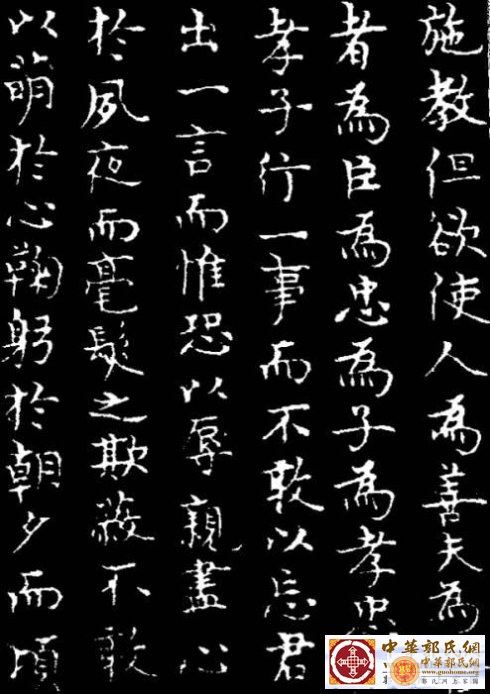 施教但欲使人為善夫為
者為臣為忠為子為孝忠
孝子行一事而不敢以忘君
出一言而惟恐以辱親盡心
於夙夜而毫髮之欺蔽不敢
以萌於心鞠躬於朝夕而頃
中華郭氏網
www.guohome.org